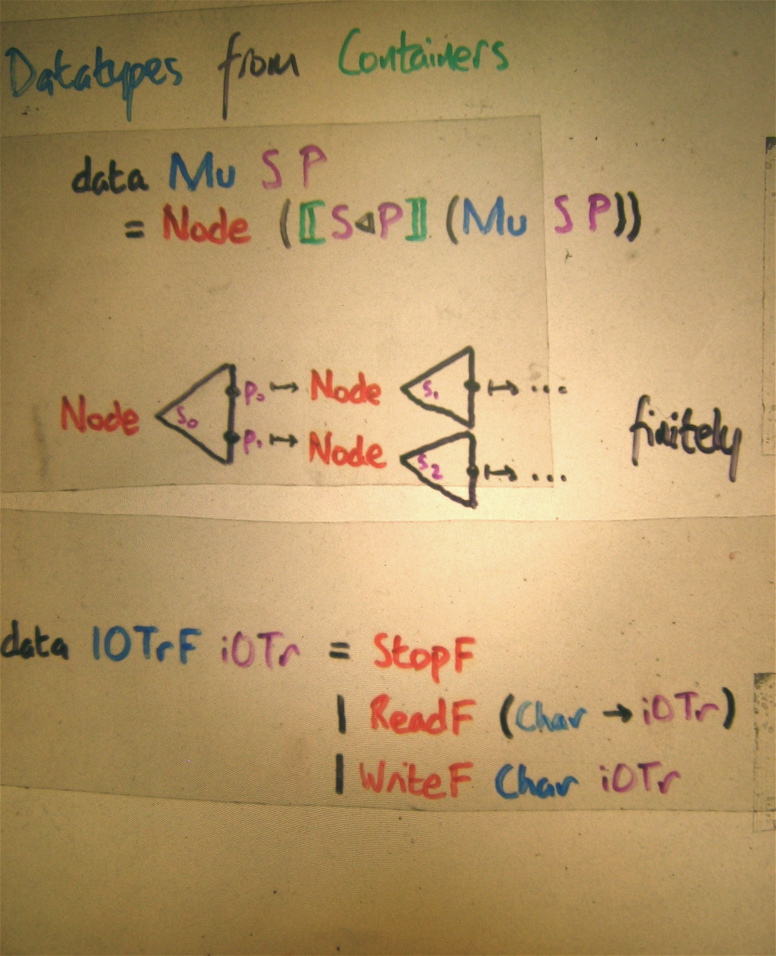 Datatypes from Containers
data Mu S P
= Node (⟦S◁P⟧ (Mu S P))
Node s₀ p₀ ↦ Node s₁ ↦ ...
p₁ ↦ Node s₂ ↦ ...
finitely
data IOTrF iOTr = StopF
| ReadF (Char → iOTr)
| WriteF Char iOTr